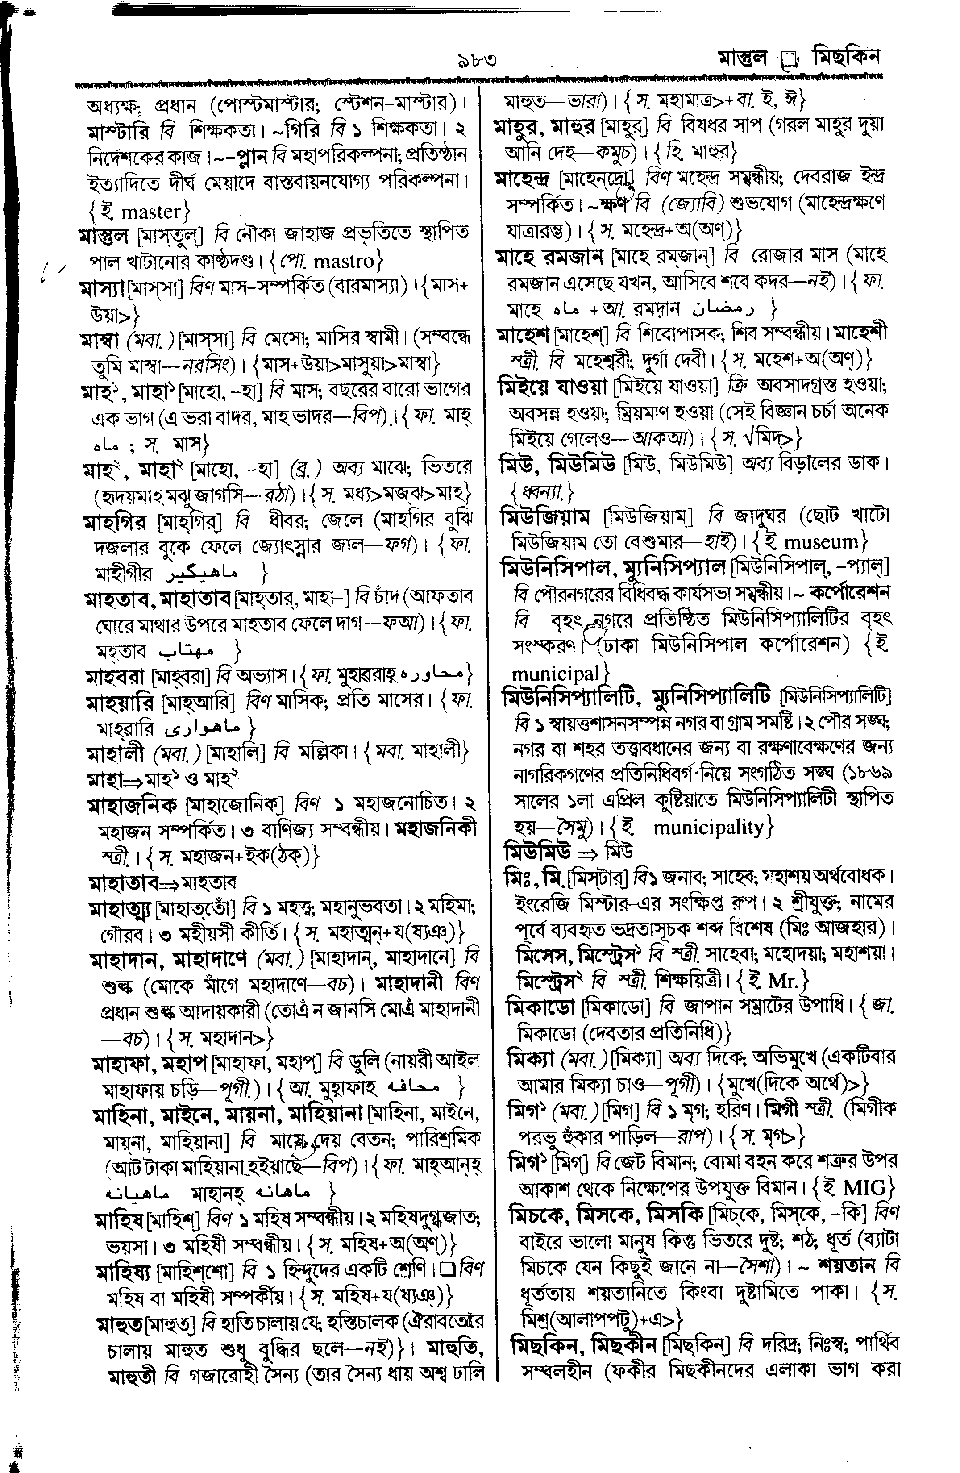 ৯৮৩
মাস্তুল □ মিছকিন
অধ্যক্ষ; প্রধান (পোস্টমাস্টার; স্টেশন-মাস্টার)।
মাস্টারি বি শিক্ষকতা। ~গিরি বি ১ শিক্ষকতা। ২
নির্দেশকের কাজ। ~-প্লান বি মহাপরিকল্পনা; প্রতিষ্ঠান
ইত্যাদিতে দীর্ঘ মেয়াদে বাস্তবায়নযোগ্য পরিকল্পনা।
{ই. master}
মাস্তুল [মাস্‌তুল্] বি নৌকা জাহাজ প্রভৃতিতে স্থাপিত
পাল খাটানোর কাষ্ঠদণ্ড। {পো. mastro}
মাস্যা [মাস্‌সা] বিণ মাস-সম্পর্কিত (বারমাস্যা)। {মাস+
উয়া>}
মাস্বা (মবা.) [মাস্‌সা] বি মেসো; মাসির স্বামী। (সম্বন্ধে
তুমি মাস্বা—নরসিং)। {মাস+উয়া>মাসুয়া>মাস্বা}
মাহ১, মাহা১ [মাহো, -হা] বি মাস; বছরের বারো ভাগের
এক ভাগ (এ ভরা বাদর, মাহ ভাদর—বিপ)। {ফা. মাহ্
ماه ; স. মাস}
মাহ২, মাহা২ [মাহো, -হা] (ব্র.) অব্য মাঝে; ভিতরে
(হৃদয়মাহ মঝু জাগসি—রঠা)। {স. মধ্য>মজঝ>মাহ}
মাহগির [মাহ্‌গির্] বি ধীবর; জেলে (মাহগির বুঝি
দজলার বুকে ফেলে জ্যোৎস্নার জাল—ফগ)। {ফা.
মাহীগীর ماهيگير }
মাহতাব, মাহাতাব [মাহ্‌তাব, মাহা-] বি চাঁদ (আফতাব
ঘোরে মাথার উপরে মাহতাব ফেলে দাগ—ফআ)। {ফা.
মহ্‌তাব مهتاب }
মাহবরা [মাহ্‌বরা] বি অভ্যাস। {ফা. মুহাররাহ্ محاوره}
মাহয়ারি [মাহ্‌আরি] বিণ মাসিক; প্রতি মাসের। {ফা.
মাহ্‌রারি ماهوارى }
মাহালী (মবা.) [মাহালি] বি মল্লিকা। {মবা. মাহালী}
মাহা⇒মাহ১ ও মাহ২
মাহাজনিক [মাহাজোনিক্] বিণ ১ মহাজনোচিত। ২
মহাজন সম্পর্কিত। ৩ বাণিজ্য সম্বন্ধীয়। মহাজনিকী
স্ত্রী.। {স. মহাজন+ইক(ঠক্)}
মাহাতাব⇒মাহতাব
মাহাত্ম্য [মাহাত্‌তোঁ] বি ১ মহত্ত্ব; মহানুভবতা। ২ মহিমা;
গৌরব। ৩ মহীয়সী কীর্তি। {স. মহাত্মন্+য(ষ্যঞ্)}
মাহাদান, মাহাদাণে (মবা.) [মাহাদান্, মাহাদানে] বি
শুল্ক (মোকে মাঁগে মহাদাণে—বচ)। মাহাদানী বিণ
প্রধান শুল্ক আদায়কারী (তোএঁ ন জানসি মোএঁ মাহাদানী
—বচ)। {স. মহাদান>}
মাহাফা, মহাপ [মাহাফা, মহাপ্] বি ডুলি (নায়রী আইল
মাহাফায় চড়ি—পূগী)। {আ. মুহাফাহ محافه }
মাহিনা, মাইনে, মায়না, মাহিয়ানা [মাহিনা, মাইনে,
মায়্‌না, মাহিয়ানা] বি মাসে দেয় বেতন; পারিশ্রমিক
(আট টাকা মাহিয়ানা হইয়াছে—বিপ)। {ফা. মাহ্‌আনহ্
ماهيانه মাহানহ্ ماهانه }
মাহিষ [মাহিশ্] বিণ ১ মহিষ সম্বন্ধীয়। ২ মহিষদুগ্ধজাত;
ভয়সা। ৩ মহিষী সম্বন্ধীয়। {স. মহিষ+অ(অণ্)}
মাহিষ্য [মাহিশ্‌শো] বি ১ হিন্দুদের একটি শ্রেণি। □ বিণ
মহিষ বা মহিষী সম্পর্কীয়। {স. মহিষ+য(ষ্যঞ্)}
মাহুত [মাহুত্] বি হাতি চালায় যে; হস্তিচালক (ঐরাবতেরে
চালায় মাহুত শুধু বুদ্ধির ছলে—নই)}। মাহুতি,
মাহুতী বি গজারোহী সৈন্য (তার সৈন্য ধায় অশ্ব ঢালি
মাহুত—ভারা)। {স. মহামাত্র>+বা. ই, ঈ}
মাহুর, মাহুর [মাহুর্] বি বিষধর সাপ (গরল মাহুর দুয়া
আনি দেহ—কমুচ)। {হি. মাহুর}
মাহেন্দ্র [মাহেন্‌দ্রো] বিণ মহেন্দ্র সম্বন্ধীয়; দেবরাজ ইন্দ্র
সম্পর্কিত। ~ক্ষণ বি (জ্যোবি) শুভযোগ (মাহেন্দ্রক্ষণে
যাত্রারম্ভ)। {স. মহেন্দ্র+অ(অণ্)}
মাহে রমজান [মাহে রম্‌জান্] বি রোজার মাস (মাহে
রমজান এসেছে যখন, আসিবে শবে কদর—নই)। {ফা.
মাহে ماه +আ. রমদান رمضان }
মাহেশ [মাহেশ্] বি শিবোপাসক; শিব সম্বন্ধীয়। মাহেশী
স্ত্রী. বি মহেশ্বরী; দুর্গা দেবী। {স. মহেশ+অ(অণ্)}
মিইয়ে যাওয়া [মিইয়ে যাওয়া] ক্রি অবসাদগ্রস্ত হওয়া;
অবসন্ন হওয়া; ম্রিয়মাণ হওয়া (সেই বিজ্ঞান চর্চা অনেক
মিইয়ে গেলেও—আকআ)। {স. √মিদ্>}
মিউ, মিউমিউ [মিউ, মিউমিউ] অব্য বিড়ালের ডাক।
{ধ্বন্যা.}
মিউজিয়াম [মিউজিয়াম্] বি জাদুঘর (ছোট খাটো
মিউজিয়াম তো বেশুমার—হাই)। {ই museum}
মিউনিসিপাল, ম্যুনিসিপ্যাল [মিউনিসিপাল্, -প্যাল্]
বি পৌরনগরের বিধিবদ্ধ কার্যসভা সম্বন্ধীয়। ~ কর্পোরেশন
বি বৃহৎ নগরে প্রতিষ্ঠিত মিউনিসিপ্যালিটির বৃহৎ
সংস্করণ (ঢাকা মিউনিসিপাল কর্পোরেশন) {ই
municipal}
মিউনিসিপ্যালিটি, ম্যুনিসিপ্যালিটি [মিউনিসিপ্যালিটি]
বি ১ স্বায়ত্তশাসনসম্পন্ন নগর বা গ্রাম সমষ্টি। ২ পৌর সঙ্ঘ;
নগর বা শহর তত্ত্বাবধানের জন্য বা রক্ষণাবেক্ষণের জন্য
নাগরিকগণের প্রতিনিধিবর্গ নিয়ে সংগঠিত সঙ্ঘ (১৮৬৯
সালের ১লা এপ্রিল কুষ্টিয়াতে মিউনিসিপ্যালিটী স্থাপিত
হয়—সৈমু)। {ই. municipality}
মিউমিউ ⇒ মিউ
মিঃ, মি. [মিস্‌টার্] বি১ জনাব; সাহেব; মহাশয় অর্থবোধক।
ইংরেজি মিস্টার-এর সংক্ষিপ্ত রূপ। ২ শ্রীযুক্ত; নামের
পূর্বে ব্যবহৃত ভদ্রতাসূচক শব্দ বিশেষ (মিঃ আজহার)।
মিসেস, মিস্ট্রেস১ বি স্ত্রী. সাহেবা; মহোদয়া; মহাশয়া।
মিস্ট্রেস২ বি স্ত্রী. শিক্ষয়িত্রী। {ই Mr.}
মিকাডো [মিকাডো] বি জাপান সম্রাটের উপাধি। {জা.
মিকাডো (দেবতার প্রতিনিধি)}
মিক্যা (মবা.) [মিক্যা] অব্য দিকে; অভিমুখে (একটিবার
আমার মিক্যা চাও—পূগী)। {মুখে(দিকে অর্থে)>}
মিগ১ (মবা.) [মিগ] বি ১ মৃগ; হরিণ। মিগী স্ত্রী. (মিগীক
পরভু হুঁকার পাড়িল—রাপ)। {স. মৃগ>}
মিগ২ [মিগ্] বি জেট বিমান; বোমা বহন করে শত্রুর উপর
আকাশ থেকে নিক্ষেপের উপযুক্ত বিমান। {ই MIG}
মিচকে, মিসকে, মিসকি [মিচ্‌কে, মিস্‌কে, -কি] বিণ
বাইরে ভালো মানুষ কিন্তু ভিতরে দুষ্ট; শঠ; ধূর্ত (ব্যাটা
মিচকে যেন কিছুই জানে না—সৈশা)। ~ শয়তান বি
ধূর্ততায় শয়তানিতে কিংবা দুষ্টামিতে পাকা। {স.
মিশ্র(আলাপপটু)+এ>}
মিছকিন, মিছকীন [মিছ্‌কিন্] বি দরিদ্র; নিঃস্ব; পার্থিব
সম্বলহীন (ফকীর মিছকীনদের এলাকা ভাগ করা